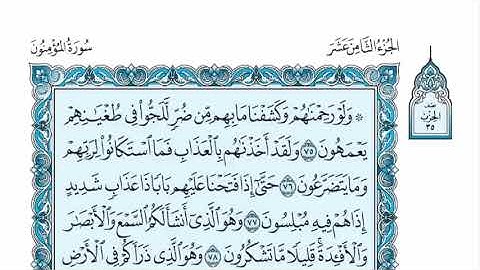 الجُزْءُ الثَّامِنَ عَشَرَ
سُورَةُ المُؤْمِنُونَ
الحِزْب
٣٥
۞ وَلَوْ رَحِمْنَٰهُمْ وَكَشَفْنَا مَا بِهِم مِّن ضُرٍّ لَّلَجُّوا۟ فِى طُغْيَٰنِهِمْ
يَعْمَهُونَ ٧٥ وَلَقَدْ أَخَذْنَٰهُم بِٱلْعَذَابِ فَمَا ٱسْتَكَانُوا۟ لِرَبِّهِمْ
وَمَا يَتَضَرَّعُونَ ٧٦ حَتَّىٰٓ إِذَا فَتَحْنَا عَلَيْهِم بَابًا ذَا عَذَابٍ شَدِيدٍ
إِذَا هُمْ فِيهِ مُبْلِسُونَ ٧٧ وَهُوَ ٱلَّذِىٓ أَنشَأَ لَكُمُ ٱلسَّمْعَ وَٱلْأَبْصَٰرَ
وَٱلْأَفْـِٔدَةَ ۚ قَلِيلًا مَّا تَشْكُرُونَ ٧٨ وَهُوَ ٱلَّذِى ذَرَأَكُمْ فِى ٱلْأَرْضِ